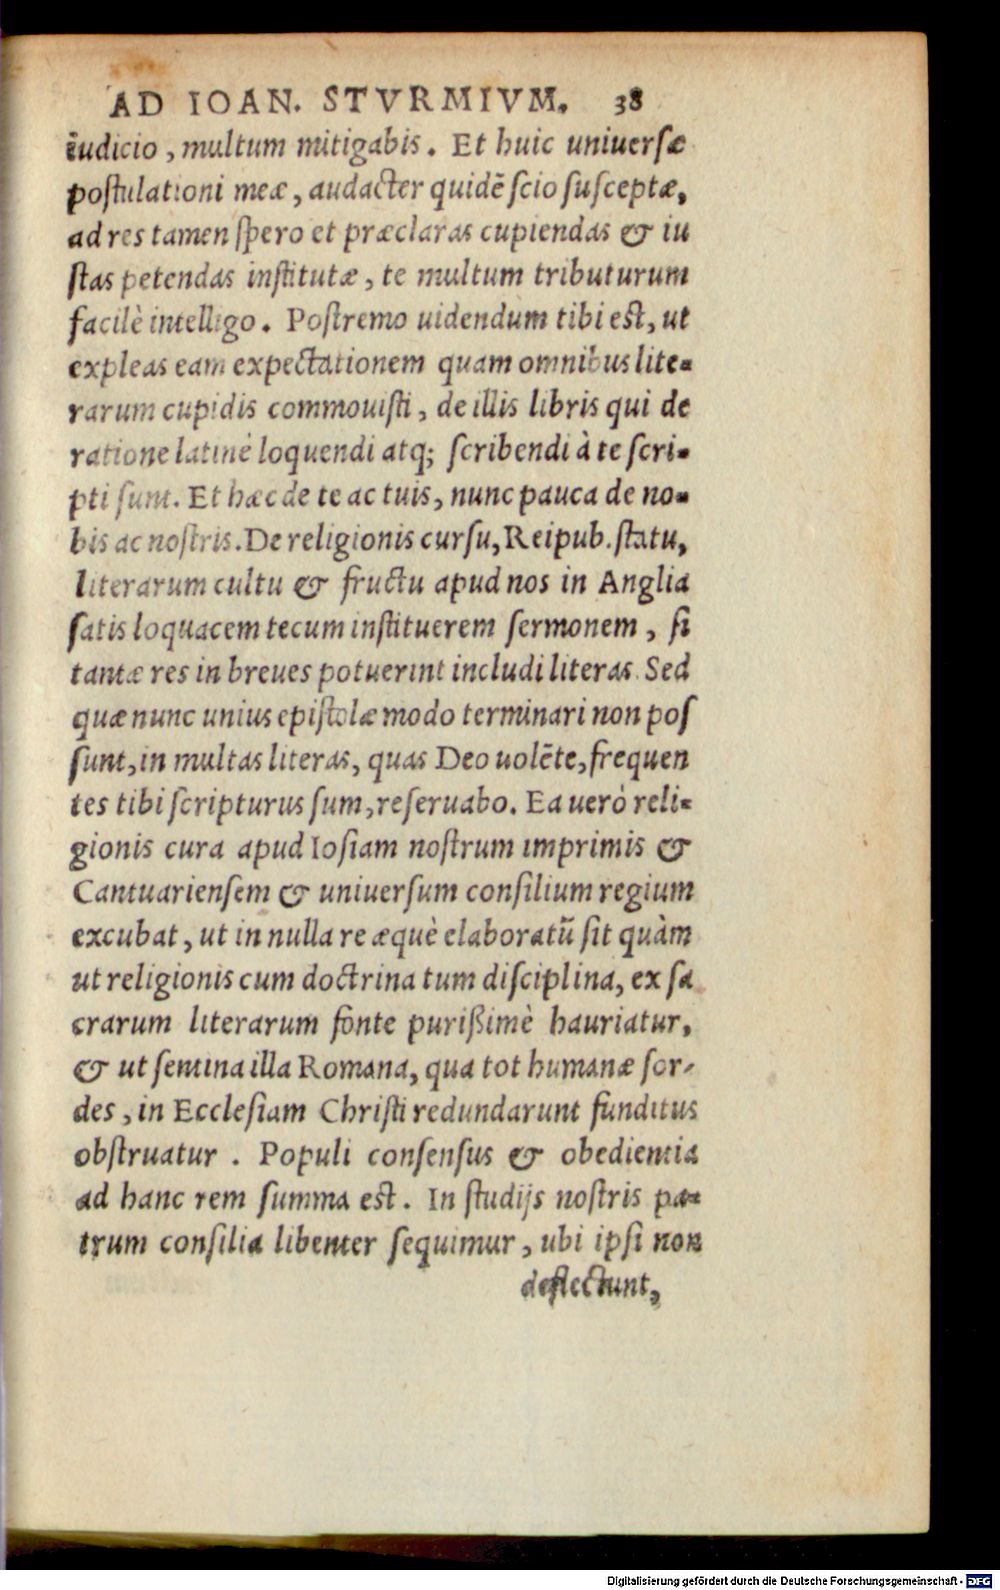 AD IOAN. STVRMIVM. 38
iudicio, multum mitigabis. Et huic uniuersæ
poſtulationi meæ, audacter quidẽ ſcio ſuſceptæ,
ad res tamen ſpero et præclaras cupiendas & iu
ſtas petendas inſtitutæ, te multum tributurum
facilè intelligo. Poſtremo uidendum tibi eſt, ut
expleas eam expectationem quam omnibus lite-
rarum cupidis commouiſti, de illis libris qui de
ratione latinè loquendi atq; ſcribendi à te ſcri-
pti ſunt. Et hæc de te ac tuis, nunc pauca de no-
bis ac noſtris. De religionis curſu, Reipub. ſtatu,
literarum cultu & fructu apud nos in Anglia
ſatis loquacem tecum inſtituerem ſermonem, ſi
tantæ res in breues potuerint includi literas. Sed
quæ nunc unius epiſtolæ modo terminari non poſ
ſunt, in multas literas, quas Deo uolẽte, frequen
tes tibi ſcripturus ſum, reſeruabo. Ea uerò reli-
gionis cura apud Ioſiam noſtrum imprimis &
Cantuarienſem & uniuerſum conſilium regium
excubat, ut in nulla re æquè elaboratũ ſit quàm
ut religionis cum doctrina tum diſciplina, ex ſa
crarum literarum fonte purißimè hauriatur,
& ut ſentina illa Romana, qua tot humanæ ſor-
des, in Eccleſiam Chriſti redundarunt funditus
obſtruatur. Populi conſenſus & obedientia
ad hanc rem ſumma eſt. In ſtudijs noſtris pa-
trum conſilia libenter ſequimur, ubi ipſi non
deflectunt,
Digitalisierung gefördert durch die Deutsche Forschungsgemeinschaft - DFG